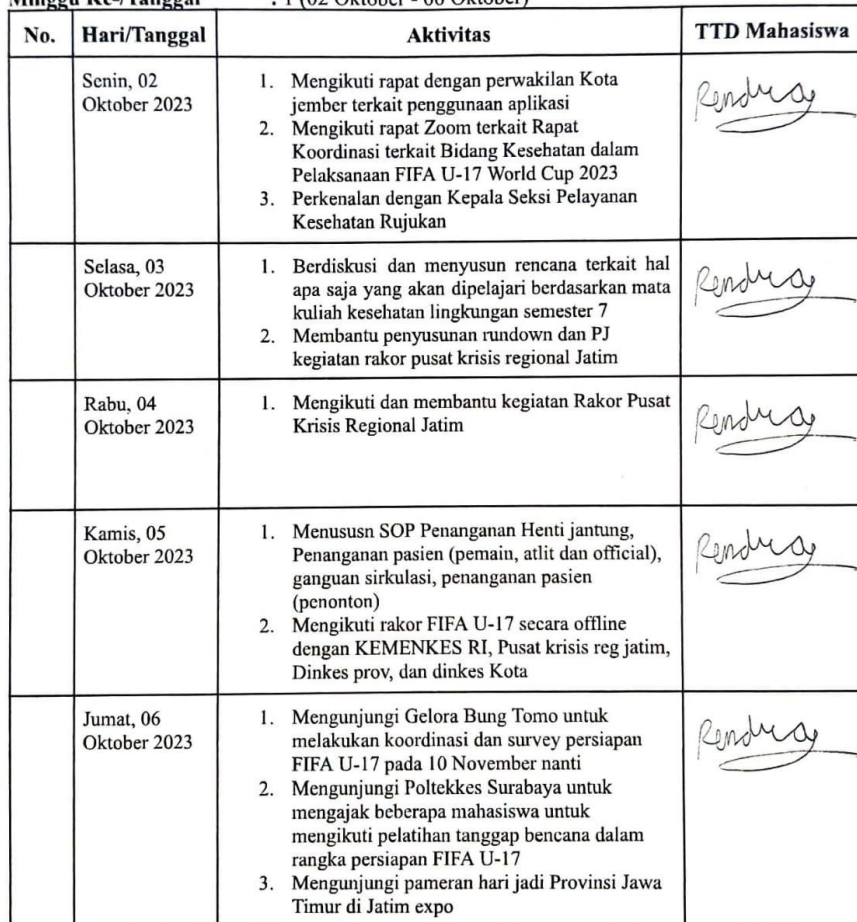 Minggu Ke-/Tanggal : 1 (02 Oktober - 06 Oktober)
No. Hari/Tanggal Aktivitas TTD Mahasiswa
Senin, 02
Oktober 2023
1. Mengikuti rapat dengan perwakilan Kota
jember terkait penggunaan aplikasi
2. Mengikuti rapat Zoom terkait Rapat
Koordinasi terkait Bidang Kesehatan dalam
Pelaksanaan FIFA U-17 World Cup 2023
3. Perkenalan dengan Kepala Seksi Pelayanan
Kesehatan Rujukan
Rendra
Selasa, 03
Oktober 2023
1. Berdiskusi dan menyusun rencana terkait hal
apa saja yang akan dipelajari berdasarkan mata
kuliah kesehatan lingkungan semester 7
2. Membantu penyusunan rundown dan PJ
kegiatan rakor pusat krisis regional Jatim
Rendra
Rabu, 04
Oktober 2023
1. Mengikuti dan membantu kegiatan Rakor Pusat
Krisis Regional Jatim
Rendra
Kamis, 05
Oktober 2023
1. Menususn SOP Penanganan Henti jantung,
Penanganan pasien (pemain, atlit dan official),
ganguan sirkulasi, penanganan pasien
(penonton)
2. Mengikuti rakor FIFA U-17 secara offline
dengan KEMENKES RI, Pusat krisis reg jatim,
Dinkes prov, dan dinkes Kota
Rendra
Jumat, 06
Oktober 2023
1. Mengunjungi Gelora Bung Tomo untuk
melakukan koordinasi dan survey persiapan
FIFA U-17 pada 10 November nanti
2. Mengunjungi Poltekkes Surabaya untuk
mengajak beberapa mahasiswa untuk
mengikuti pelatihan tanggap bencana dalam
rangka persiapan FIFA U-17
3. Mengunjungi pameran hari jadi Provinsi Jawa
Timur di Jatim expo
Rendra